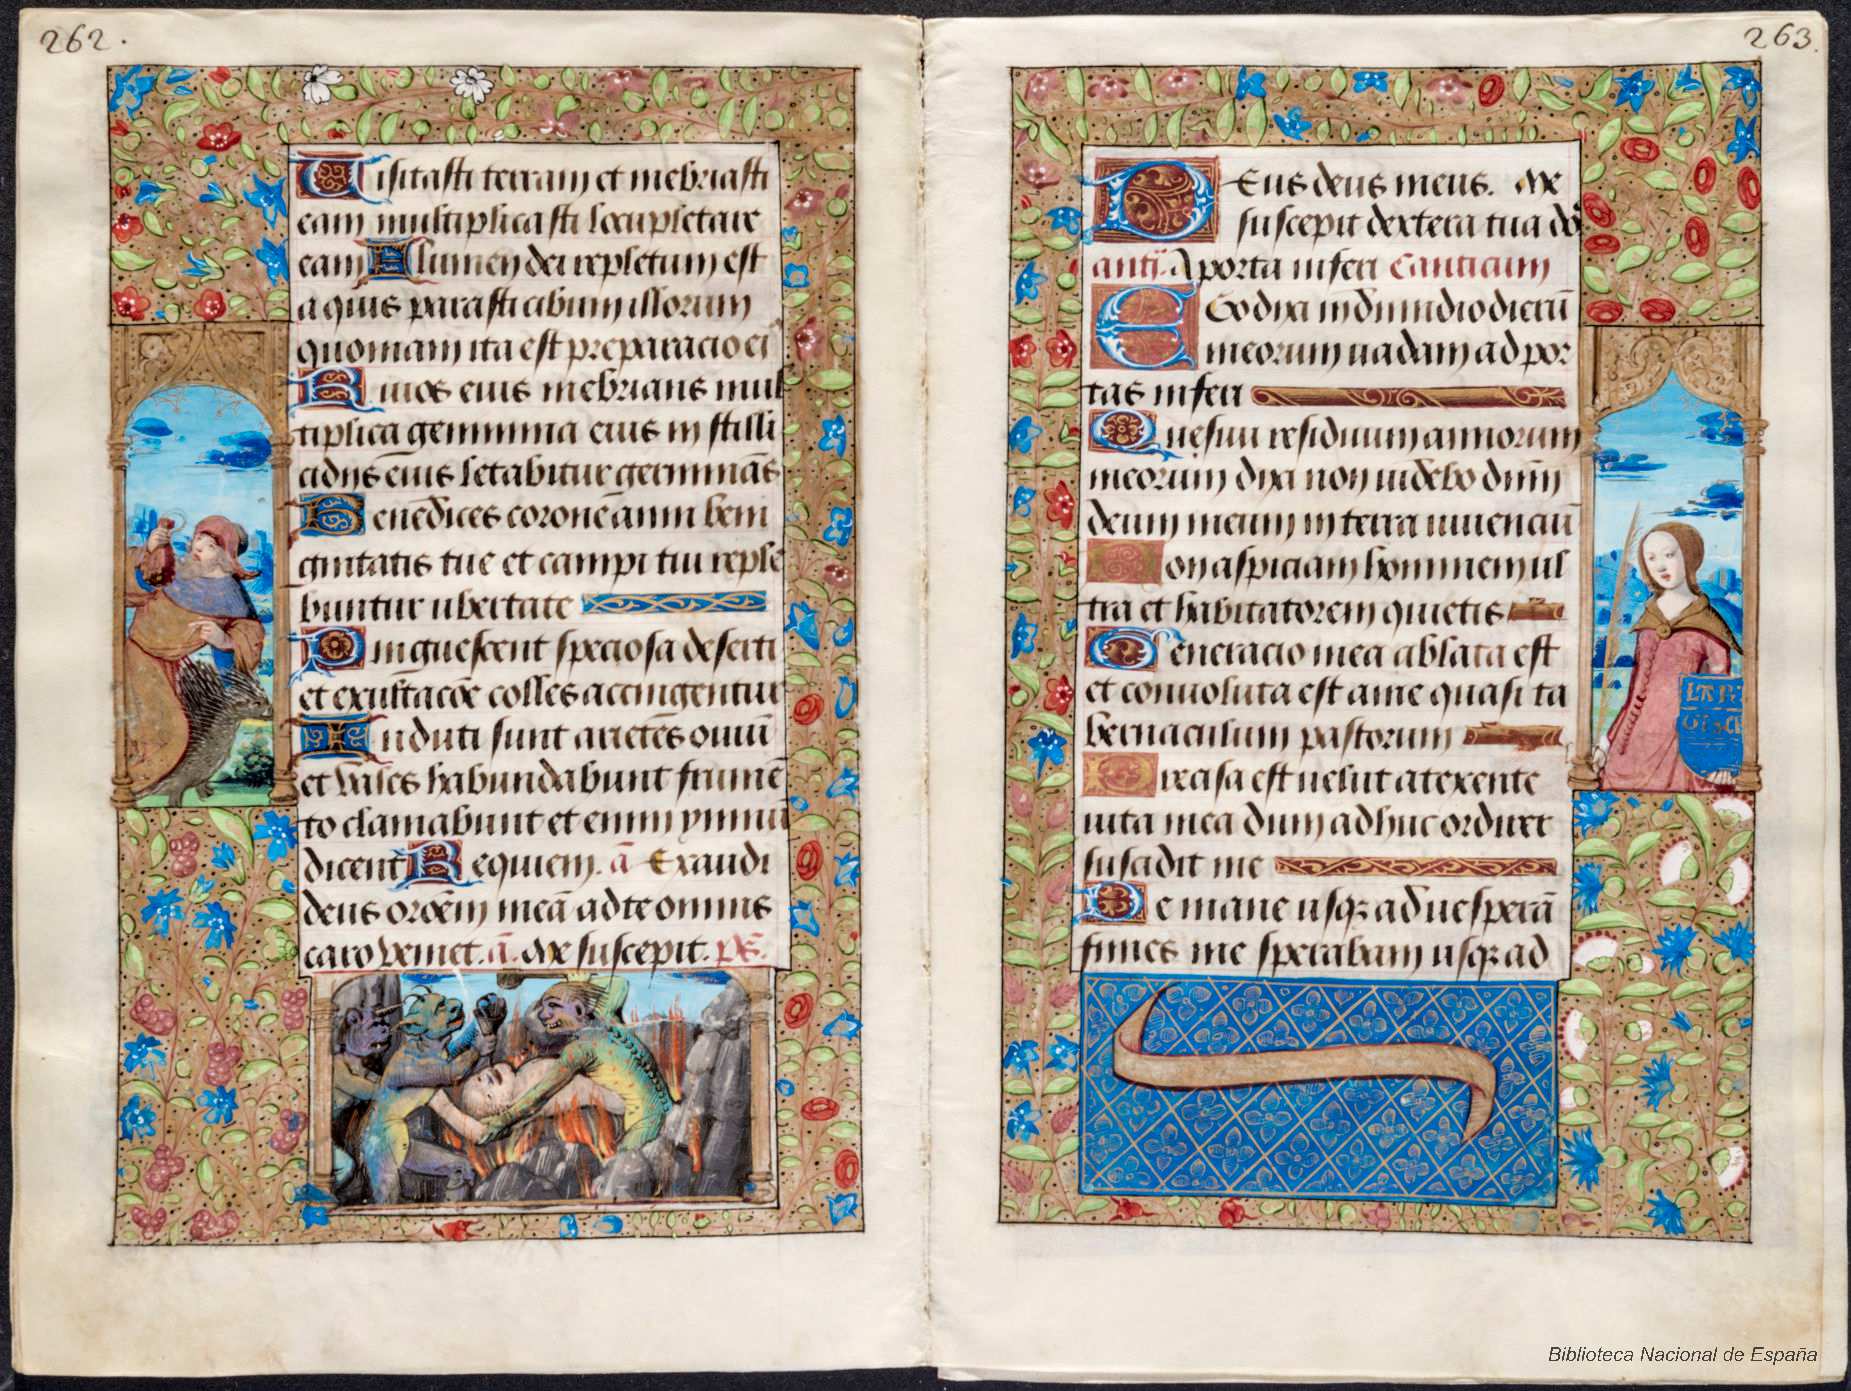 262.
Visitasti terram et inebriasti
eam multiplicasti locupletare
eam Flumen dei repletum est
aquis parasti cibum illorum
quoniam ita est preparacio ei
Rivos eius inebrians mul
tiplica genimina eius in stilli
cidijs eius letabitur germinãs
Benedices corone anni beni
gnitatis tue et campi tui reple
buntur ubertate
Pinguescent speciosa deserti
et exultacõe colles accingentur
Induti sunt arietes oviũ
et valles habundabunt frumẽ
to clamabunt et enim ymnũ
dicent Requiem. ã Exaudi
deus orõem meã ad te omnis
caro veniet. ã. Me suscepit. ps.
263.
Deus deus meus. Me
suscepit dextera tua dõ
anti. A porta inferi Canticum
Ego dixi in dimidio dierũ
meorum vadam ad por
tas inferi
Quesivi residuum annorum
meorum dixi non videbo dñm
deum meum in terra viventiũ
Non aspiciam hominem ul
tra et habitatorem quietis
Generacio mea ablata est
et convoluta est a me quasi ta
bernaculum pastorum
Precisa est velut a texente
vita mea dum adhuc ordirer
suscidit me
De mane usqз ad vesperã
finies me sperabam usqз ad
Biblioteca Nacional de España